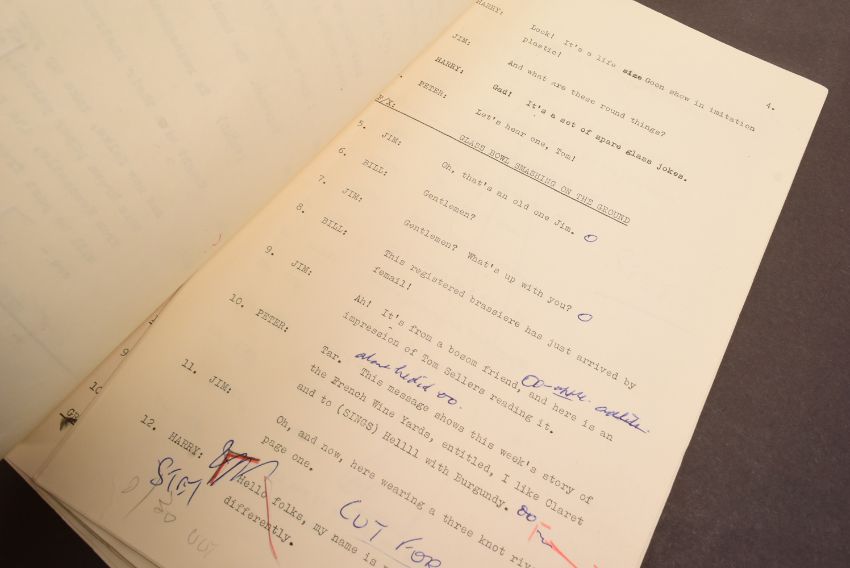 4.
HARRY: Look! It's a life size Goon show in imitation
plastic!
JIM: And what are these round things?
HARRY: Gad! It's a set of spare glass jokes.
PETER: Let's hear one, Tom!
F/X: GLASS BOWL SMASHING ON THE GROUND
5. JIM: Oh, that's an old one Jim. O
6. BILL: Gentlemen?
7. JIM: Gentlemen? What's up with you? O
8. BILL: This registered brassiere has just arrived by
femail!
9. JIM: Ah! It's from a bosom friend, and here is an
impression of Tom Sellers reading it.
10. PETER: Tar. This message shows this week's story of
the French Wine Yards, entitled, I like Claret
and to (SINGS) Hellll with Burgundy. OO
11. JIM: Oh, and now, here wearing a three knot
page one.
12. HARRY: Hello folks, my name is
differently.
CUT FOR
OUT
9
10